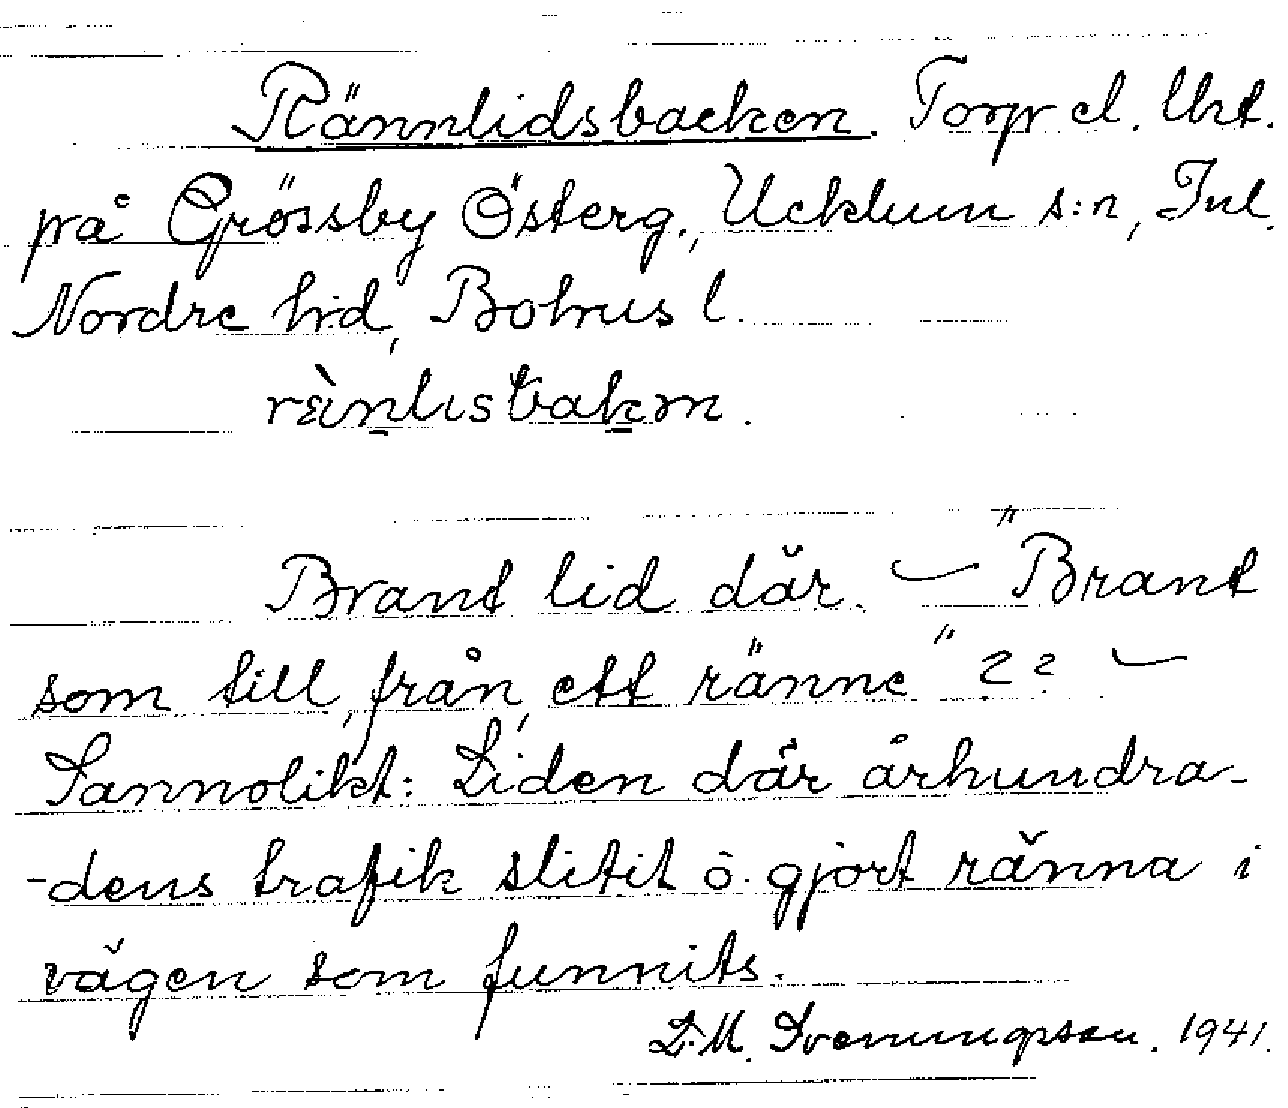 Rännlidsbacken. Torp el. Utst.
på Grössby Österg., Ucklum s:n, Inl.
Nordre hrd, Bohus l.
Brant lid där. — "Brant
som till, från, ett ränne" ?? —
Sannolikt: Liden där århundra-
-dens trafik slitit o. gjort ränna i
vägen som funnits.
D. M. Svenungsson. 1941.